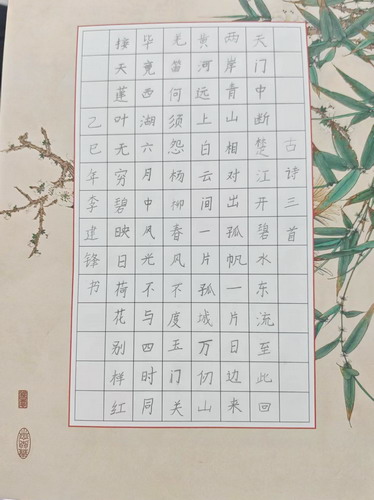 古诗三首
天门中断楚江开碧水东流至此回
两岸青山相对出孤帆一片日边来
黄河远上白云间一片孤城万仞山
羌笛何须怨杨柳春风不度玉门关
毕竟西湖六月中风光不与四时同
接天莲叶无穷碧映日荷花别样红
乙巳年李建锋书